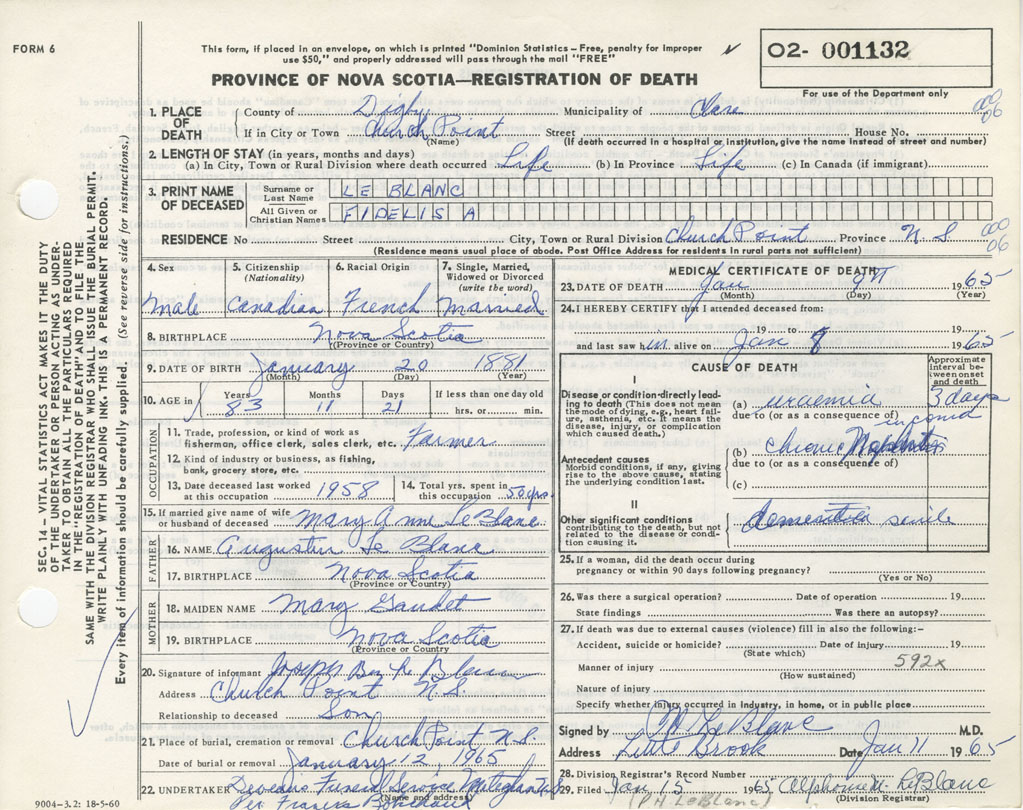 FORM 6
This form, if placed in an envelope, on which is printed "Dominion Statistics – Free, penalty for improper
use $50," and properly addressed will pass through the mail "FREE"
02- 001132
For use of the Department only
PROVINCE OF NOVA SCOTIA—REGISTRATION OF DEATH
SEC. 14 – VITAL STATISTICS ACT MAKES IT THE DUTY
OF THE UNDERTAKER OR PERSON ACTING AS UNDER-
TAKER TO OBTAIN ALL THE PARTICULARS REQUIRED
IN THE "REGISTRATION OF DEATH" AND TO FILE THE
SAME WITH THE DIVISION REGISTRAR WHO SHALL ISSUE THE BURIAL PERMIT.
WRITE PLAINLY WITH UNFADING INK. THIS IS A PERMANENT RECORD.
Every item of information should be carefully supplied. (See reverse side for instructions.)
1. PLACE OF DEATH
County of Digby Municipality of Clare
If in City or Town Church Point Street House No.
(Name) (If death occurred in a hospital or institution, give the name instead of street and number)
000
06
2. LENGTH OF STAY (in years, months and days)
(a) In City, Town or Rural Division where death occurred Life (b) In Province Life (c) In Canada (if immigrant)
3. PRINT NAME OF DECEASED
Surname or Last Name LE BLANC
All Given or Christian Names FIDELIS A
RESIDENCE No Street City, Town or Rural Division Church Point Province N.S
(Residence means usual place of abode. Post Office Address for residents in rural parts not sufficient)
000
06
4. Sex
Male
5. Citizenship (Nationality)
Canadian
6. Racial Origin
French
7. Single, Married, Widowed or Divorced (write the word)
Married
8. BIRTHPLACE Nova Scotia
(Province or Country)
9. DATE OF BIRTH January 20 1881
(Month) (Day) (Year)
10. AGE in Years 83 Months 11 Days 21 If less than one day old hrs. or min.
OCCUPATION
11. Trade, profession, or kind of work as
fisherman, office clerk, sales clerk, etc. Farmer
12. Kind of industry or business, as fishing,
bank, grocery store, etc.
13. Date deceased last worked at this occupation 1958
14. Total yrs. spent in this occupation 50 yrs.
15. If married give name of wife or husband of deceased Mary Anne LeBlanc
FATHER
16. NAME Augustin Le Blanc
17. BIRTHPLACE Nova Scotia
(Province or Country)
MOTHER
18. MAIDEN NAME Mary Gaudet
19. BIRTHPLACE Nova Scotia
(Province or Country
20. Signature of informant Joseph Le Blanc
Address Church Point N.S.
Relationship to deceased Son
21. Place of burial, cremation or removal Church Point N.S.
Date of burial or removal January 12, 1965
22. UNDERTAKER Funeral Service
(Name and address)
Per Francis
9004-3.2: 18-5-60
MEDICAL CERTIFICATE OF DEATH
23. DATE OF DEATH Jan 9th 1965
(Month) (Day) (Year)
24. I HEREBY CERTIFY that I attended deceased from:
19 to 19
and last saw him alive on Jan 8 1965
CAUSE OF DEATH
Approximate interval between onset and death
I
Disease or condition directly leading to death (This does not mean
the mode of dying, e.g., heart failure, asthenia, etc. It means the
disease, injury, or complication which caused death.)
(a) uraemia 3 days
due to (or as a consequence of)
Antecedent causes
Morbid conditions, if any, giving
rise to the above cause, stating
the underlying condition last.
(b) chronic Nephritis
due to (or as a consequence of)
(c)
II
Other significant conditions
contributing to the death, but not
related to the disease or condition
causing it.
dementia senile
25. If a woman, did the death occur during
pregnancy or within 90 days following pregnancy?
(Yes or No)
26. Was there a surgical operation? Date of operation 19
State findings Was there an autopsy?
27. If death was due to external causes (violence) fill in also the following:–
Accident, suicide or homicide? Date of injury 19
(State which)
592x
Manner of injury
(How sustained)
Nature of injury
Specify whether injury occurred in industry, in home, or in public place
Signed by P.H. LeBlanc M.D.
Address Little Brook Date Jan 11 1965
28. Division Registrar's Record Number
29. Filed Jan 15 1965 Alphonse M. LeBlanc
(Division Registrar)
(P H LeBlanc)